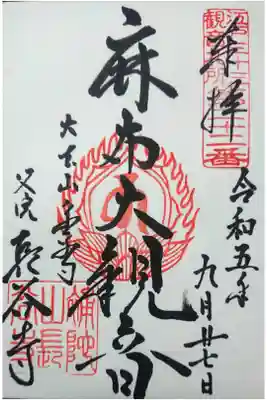 奉拝
令和五年
九月廿七日
麻布大観音
大本山永平寺
別院 長谷寺
補陀
山長
谷寺